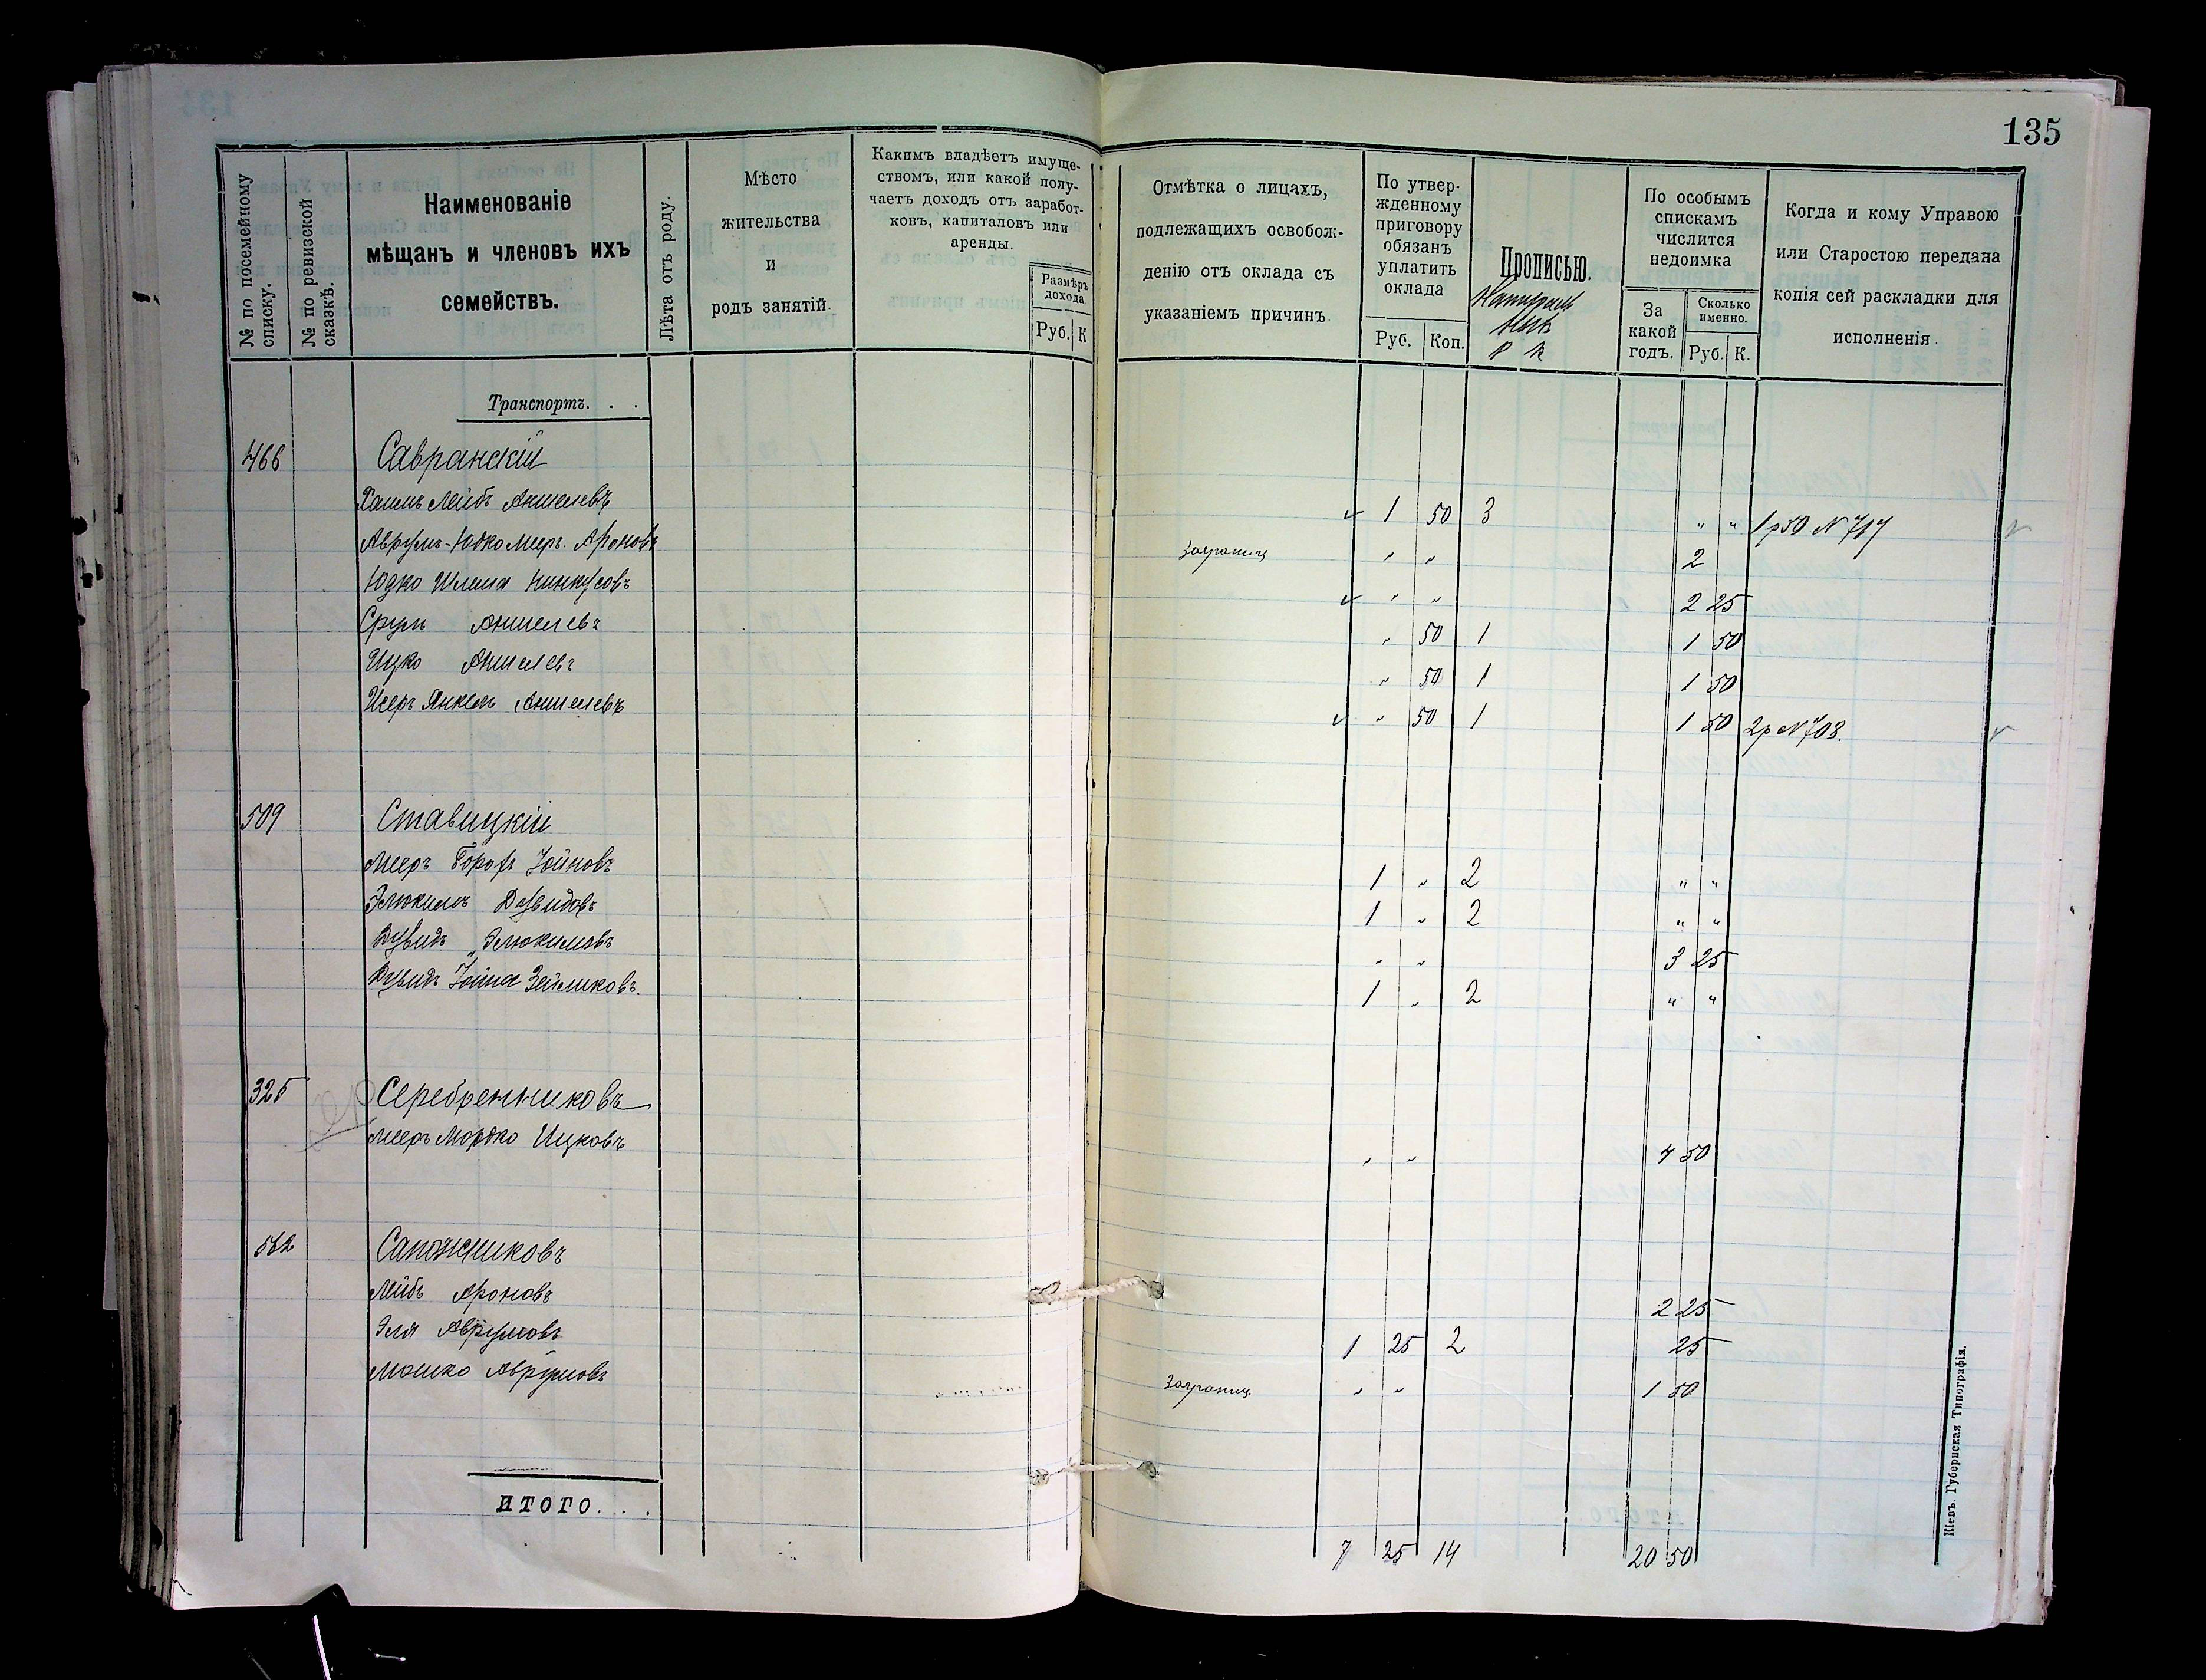 135
№ по посемейному списку.
№ по ревизской сказкѣ.
Наименованіе
мѣщанъ и членовъ ихъ
семействъ.
Лѣта отъ роду.
Мѣсто
жительства
и
родъ занятій.
Какимъ владѣетъ имуще-
ствомъ, или какой полу-
чаетъ доходъ отъ заработ-
ковъ, капиталовъ или
аренды.
Размѣръ
дохода
Руб. К
Отмѣтка о лицахъ,
подлежащихъ освобож-
денію отъ оклада съ
указаніемъ причинъ.
По утвер-
жденному
приговору
обязанъ
уплатить
оклада
Руб. Коп.
Прописью.
Р К
По особымъ
спискамъ
числится
недоимка
За
какой
годъ.
Сколько
именно.
Руб. К.
Когда и кому Управою
или Старостою передана
копія сей раскладки для
исполненія.
Транспортъ. . .
466 Савранскій
Хаимъ Лейбъ Аншелевъ ✓ 1 50 3 " " 1 р 50 N 717 ✓
Аврумъ-Юдко Меер. Ароновъ Заграниц " " 2
Юдко Шлема Пинкусовъ ✓ " " 2 25
Сруль Аншелевъ " 50 1 1 50
Ицко Аншелевъ " 50 1 1 50
Меер Янкель Аншелевъ ✓ " 50 1 1 50 2 р N 708. ✓
509 Ставицкій
Мееръ Борохъ Іойновъ 1 " 2 " "
Элюкимъ Дувидовъ 1 " 2 " "
Дувидъ Элюкимовъ " " 3 25
Дувидъ Іойна Зейликовъ. 1 " 2 " "
325 Серебренниковъ
Мееръ Мордко Ицковъ " " 4 50
532 Сапожниковъ
Лейбъ Ароновъ 2 25
Эля Аврумовъ 1 25 2 25
Мошко Аврумовъ Заграниц " " 1 50
ИТОГО. . . .
7 25 14 20 50
Кіевъ. Губернская Типографія.